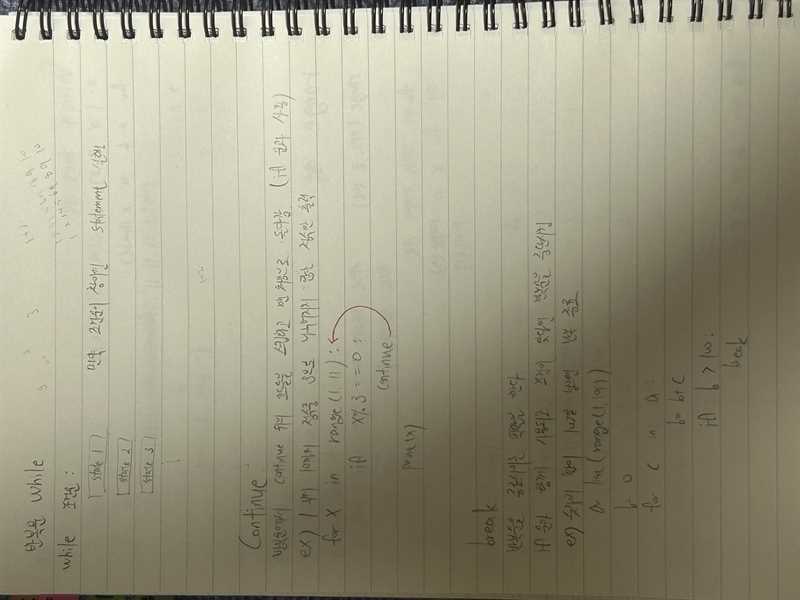 반복문 while
while 조건문 :
state 1 만약 조건문이 참이면 statement 실행
state 2
state 3
Continue
반복문에서 continue 뒤의 코드를 스킵하고 맨 처음으로 돌아감 (if 문과 사용)
ex) 1부터 10까지 정수중 3으로 나누어지지 않는 정수만 출력
for x in range(1,11):
if x%3==0:
continue
print(x)
break
반복문을 중단시키는 역할을 한다
if 문과 함께 사용되고 조건이 맞다면 반복문을 중단시킴
ex) 숫자의 합이 100을 넘으면 반복 종료
a= list(range(1,101))
b= 0
for c in a:
b= b+c
if b > 100:
break